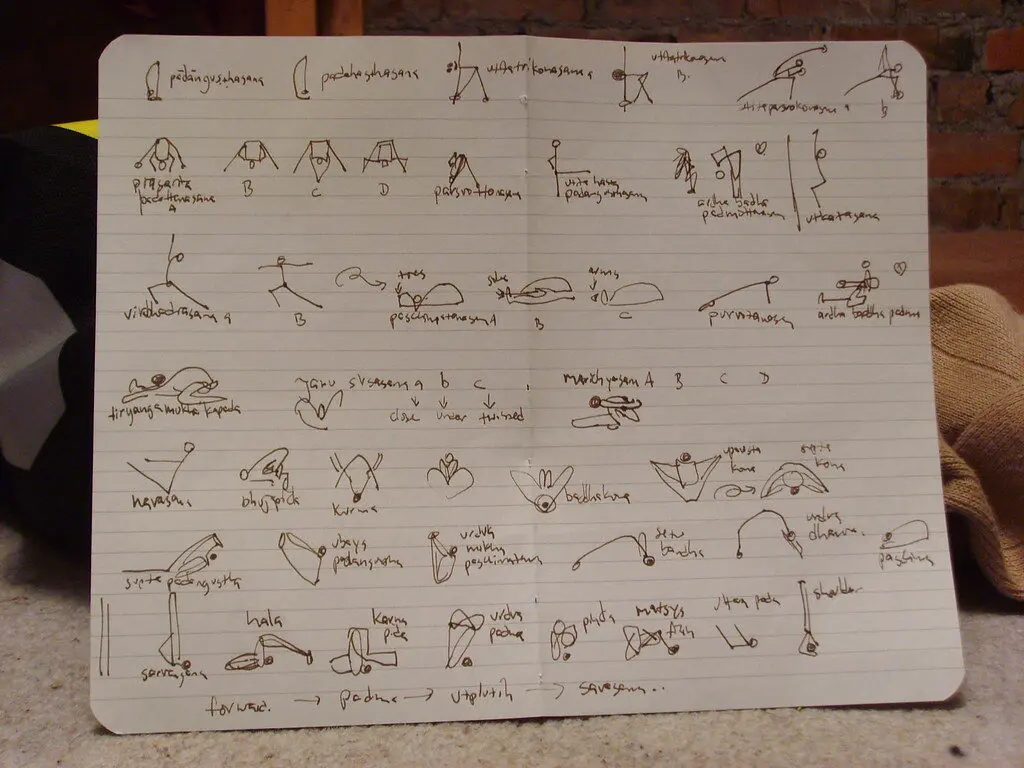 padangusthasana padahasthasana uttatrikonasana a uttatrikonasana B.
b
prasarita padottanasana A B C D parsvottanasana utite hasta padangustasana ardha badha padmottanasana utkatasana
virabhadrasana a B toes paschimotanasana A side B arms C purvotanasana ardha badha padma
tiryanga mukha kapada Janu sirsasana a b c marichyasana A B C D
close under twisted
navasana bhujpida kurma baddhakona upavista kona supta kona
supta padangustha ubaya padangustha urdva mukha paschimotana setu bandha urdva dhanura paschima
sarvangasana hala karna pida urdva padma pinda matsya uttana pada
forward. → padma → utplutih → savasana..